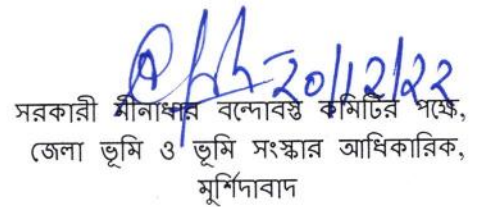 20/12/22
সরকারী মীনাধার বন্দোবস্ত কমিটির পক্ষে,
জেলা ভূমি ও ভূমি সংস্কার আধিকারিক,
মুর্শিদাবাদ